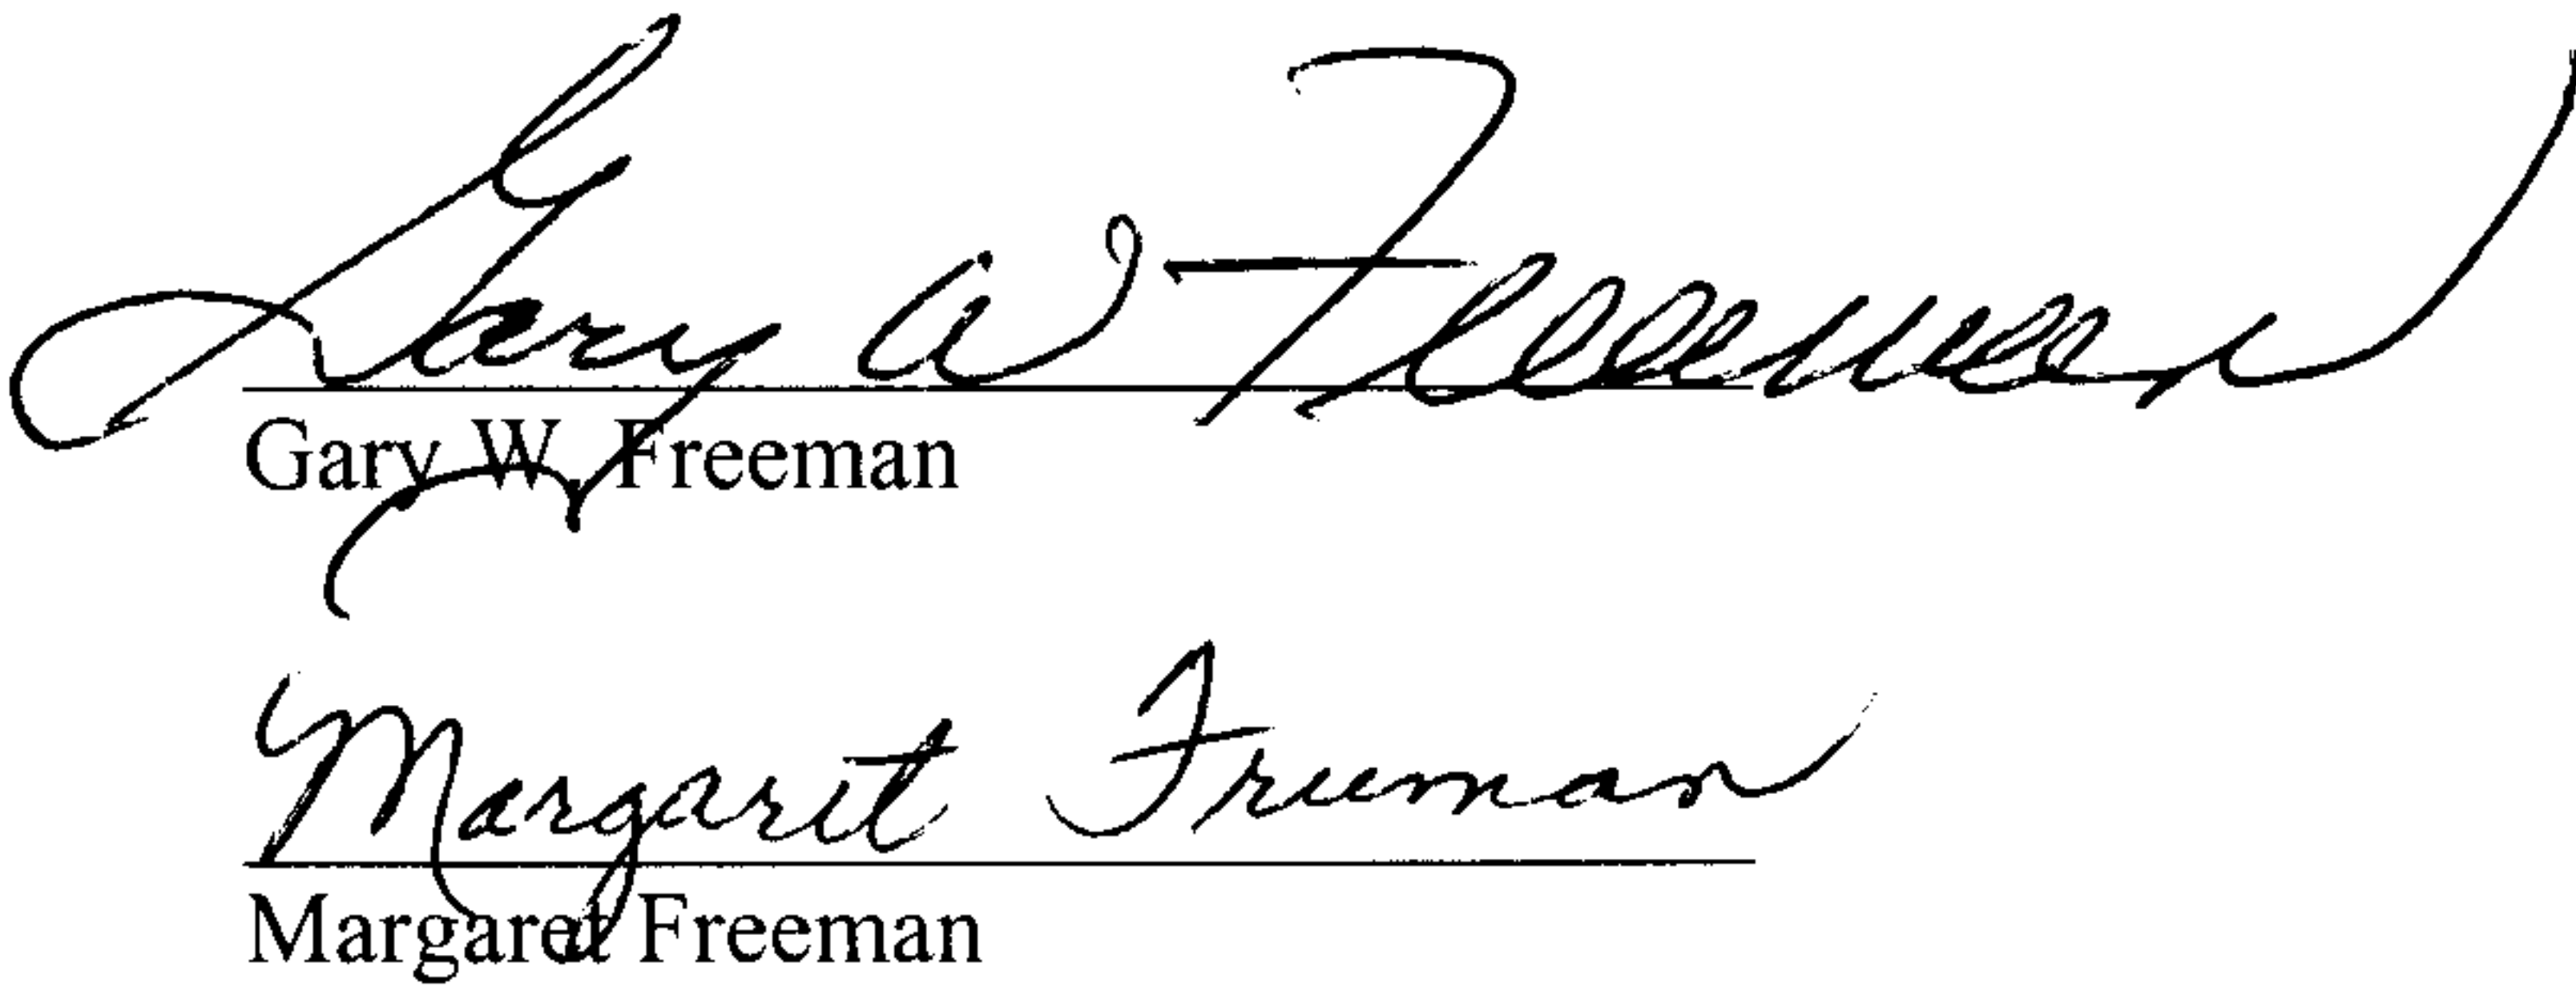 Gary W Freeman
Gary W. Freeman
Margaret Freeman
Margaret Freeman